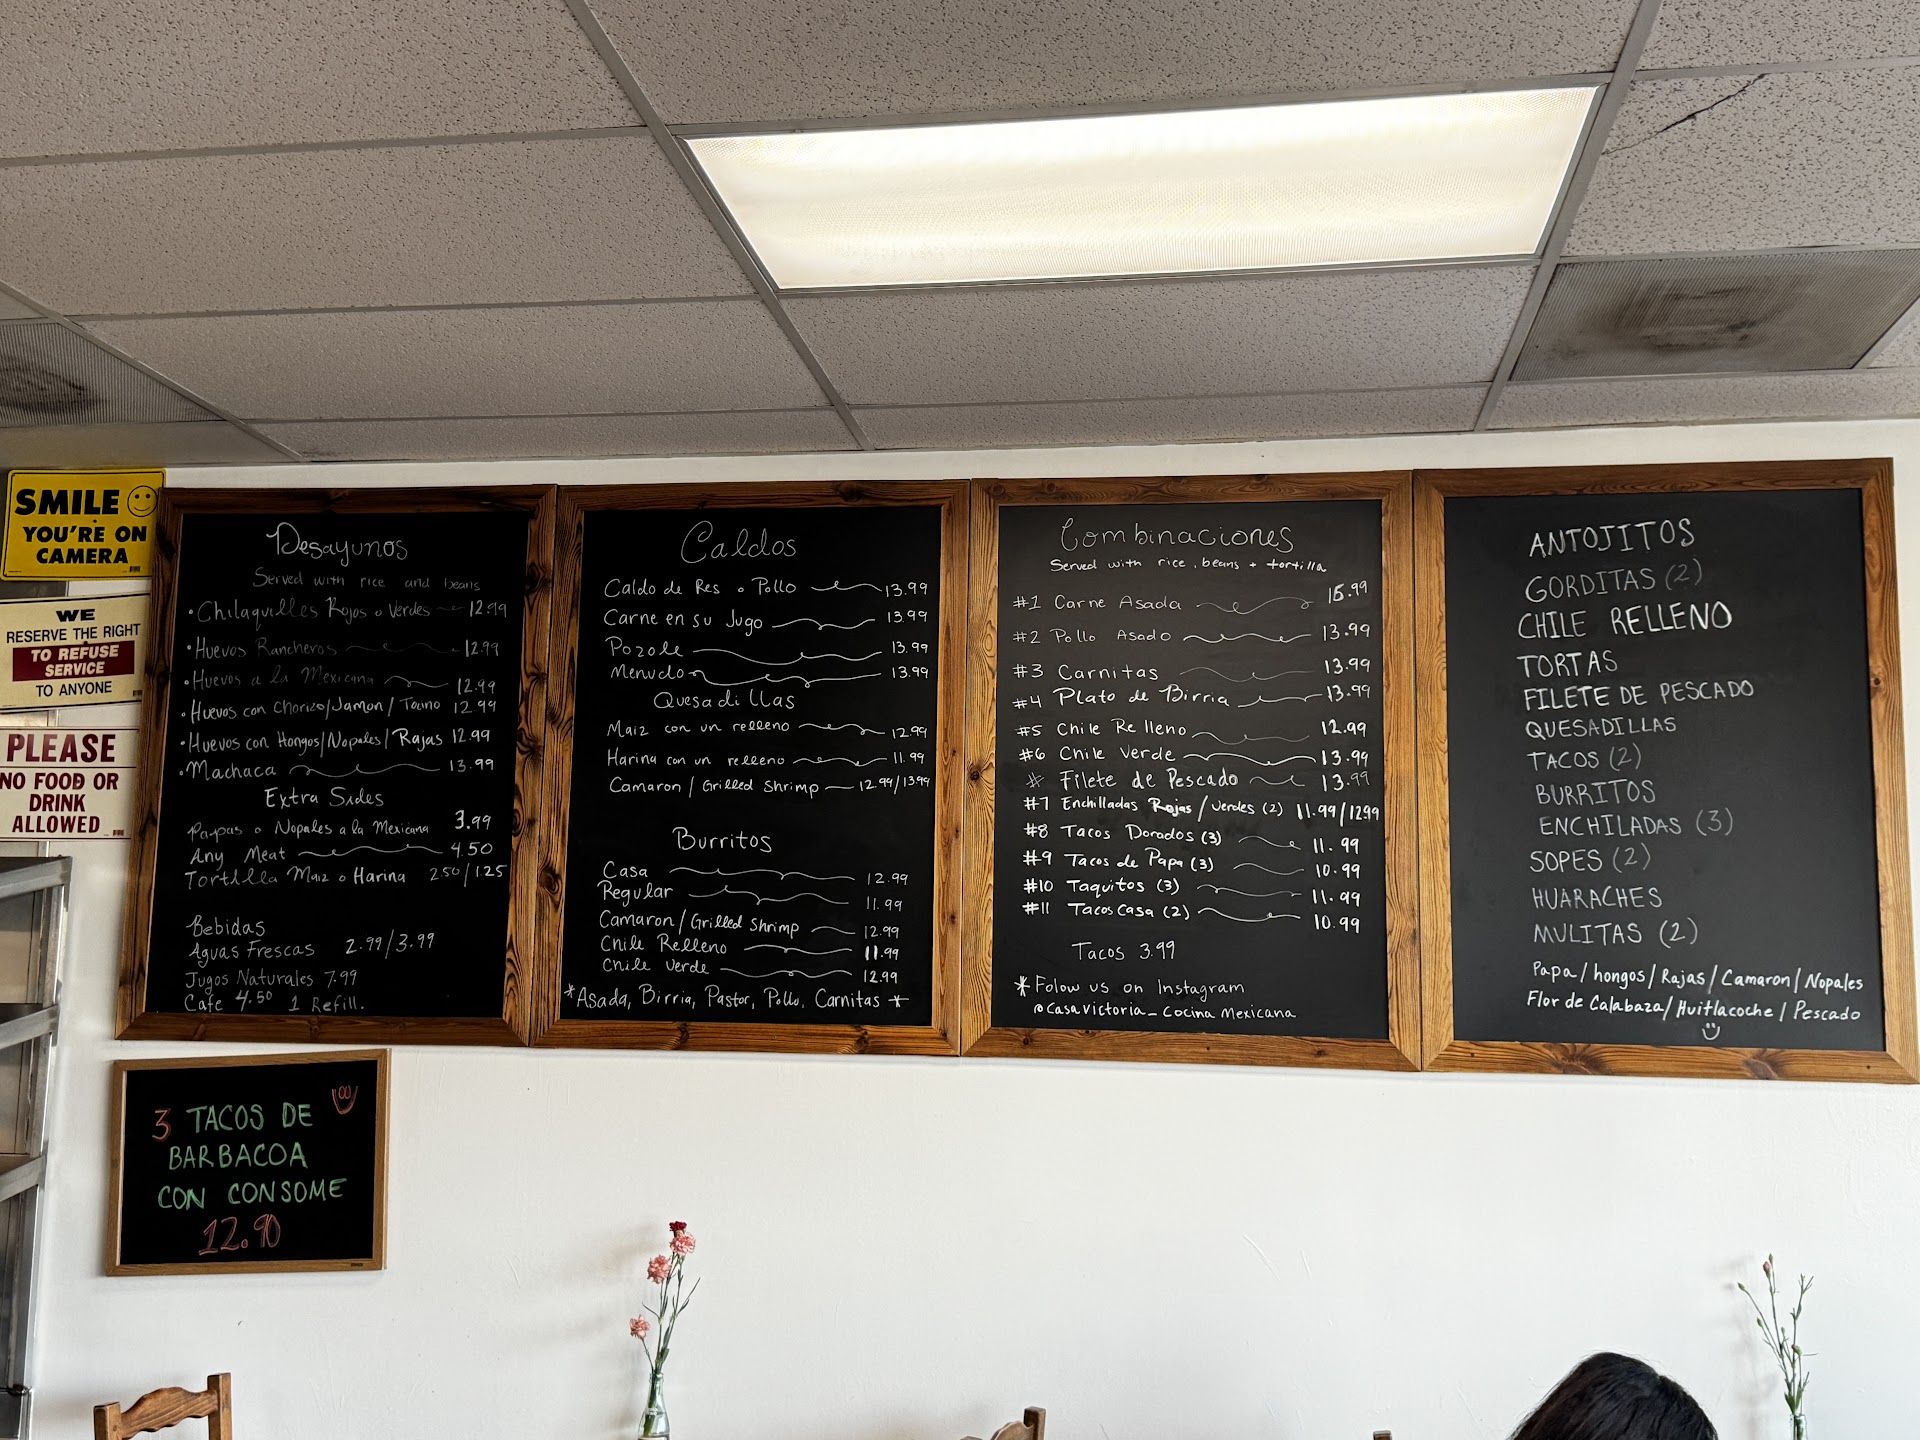 SMILE
YOU'RE ON
CAMERA
WE
RESERVE THE RIGHT
TO REFUSE
SERVICE
TO ANYONE
PLEASE
NO FOOD OR
DRINK
ALLOWED
Desayunos
Served with rice and beans
• Chilaquilles Rojos o Verdes 12.99
• Huevos Rancheros 12.99
• Huevos a la Mexicana 12.99
• Huevos con Chorizo/Jamon/Tocino 12.99
• Huevos con Hongos/Nopales/Rajas 12.99
• Machaca 13.99
Extra Sides
Papas o Nopales a la Mexicana 3.99
Any Meat 4.50
Tortilla Maiz o Harina 2.50/1.25
Bebidas
Aguas Frescas 2.99/3.99
Jugos Naturales 7.99
Cafe 4.50 1 Refill.
Caldos
Caldo de Res o Pollo 13.99
Carne en su Jugo 13.99
Pozole 13.99
Menudo 13.99
Quesadillas
Maiz con un relleno 12.99
Harina con un relleno 11.99
Camaron/Grilled Shrimp 12.99/13.99
Burritos
Casa 12.99
Regular 11.99
Camaron/Grilled Shrimp 12.99
Chile Relleno 11.99
Chile Verde 12.99
*Asada, Birria, Pastor, Pollo, Carnitas *
Combinaciones
Served with rice, beans + tortilla
#1 Carne Asada 15.99
#2 Pollo Asado 13.99
#3 Carnitas 13.99
#4 Plato de Birria 13.99
#5 Chile Relleno 12.99
#6 Chile Verde 13.99
* Filete de Pescado 13.99
#7 Enchilladas Rojas/Verdes (2) 11.99/12.99
#8 Tacos Dorados (3) 11.99
#9 Tacos de Papa (3) 10.99
#10 Taquitos (3) 11.99
#11 Tacos Casa (2) 10.99
Tacos 3.99
* Folow us on Instagram
@Casavictoria_Cocina Mexicana
ANTOJITOS
GORDITAS (2)
CHILE RELLENO
TORTAS
FILETE DE PESCADO
QUESADILLAS
TACOS (2)
BURRITOS
ENCHILADAS (3)
SOPES (2)
HUARACHES
MULITAS (2)
Papa/hongos/Rajas/Camaron/Nopales
Flor de Calabaza/Huitlacoche/Pescado
3 TACOS DE
BARBACOA
CON CONSOME
12.90